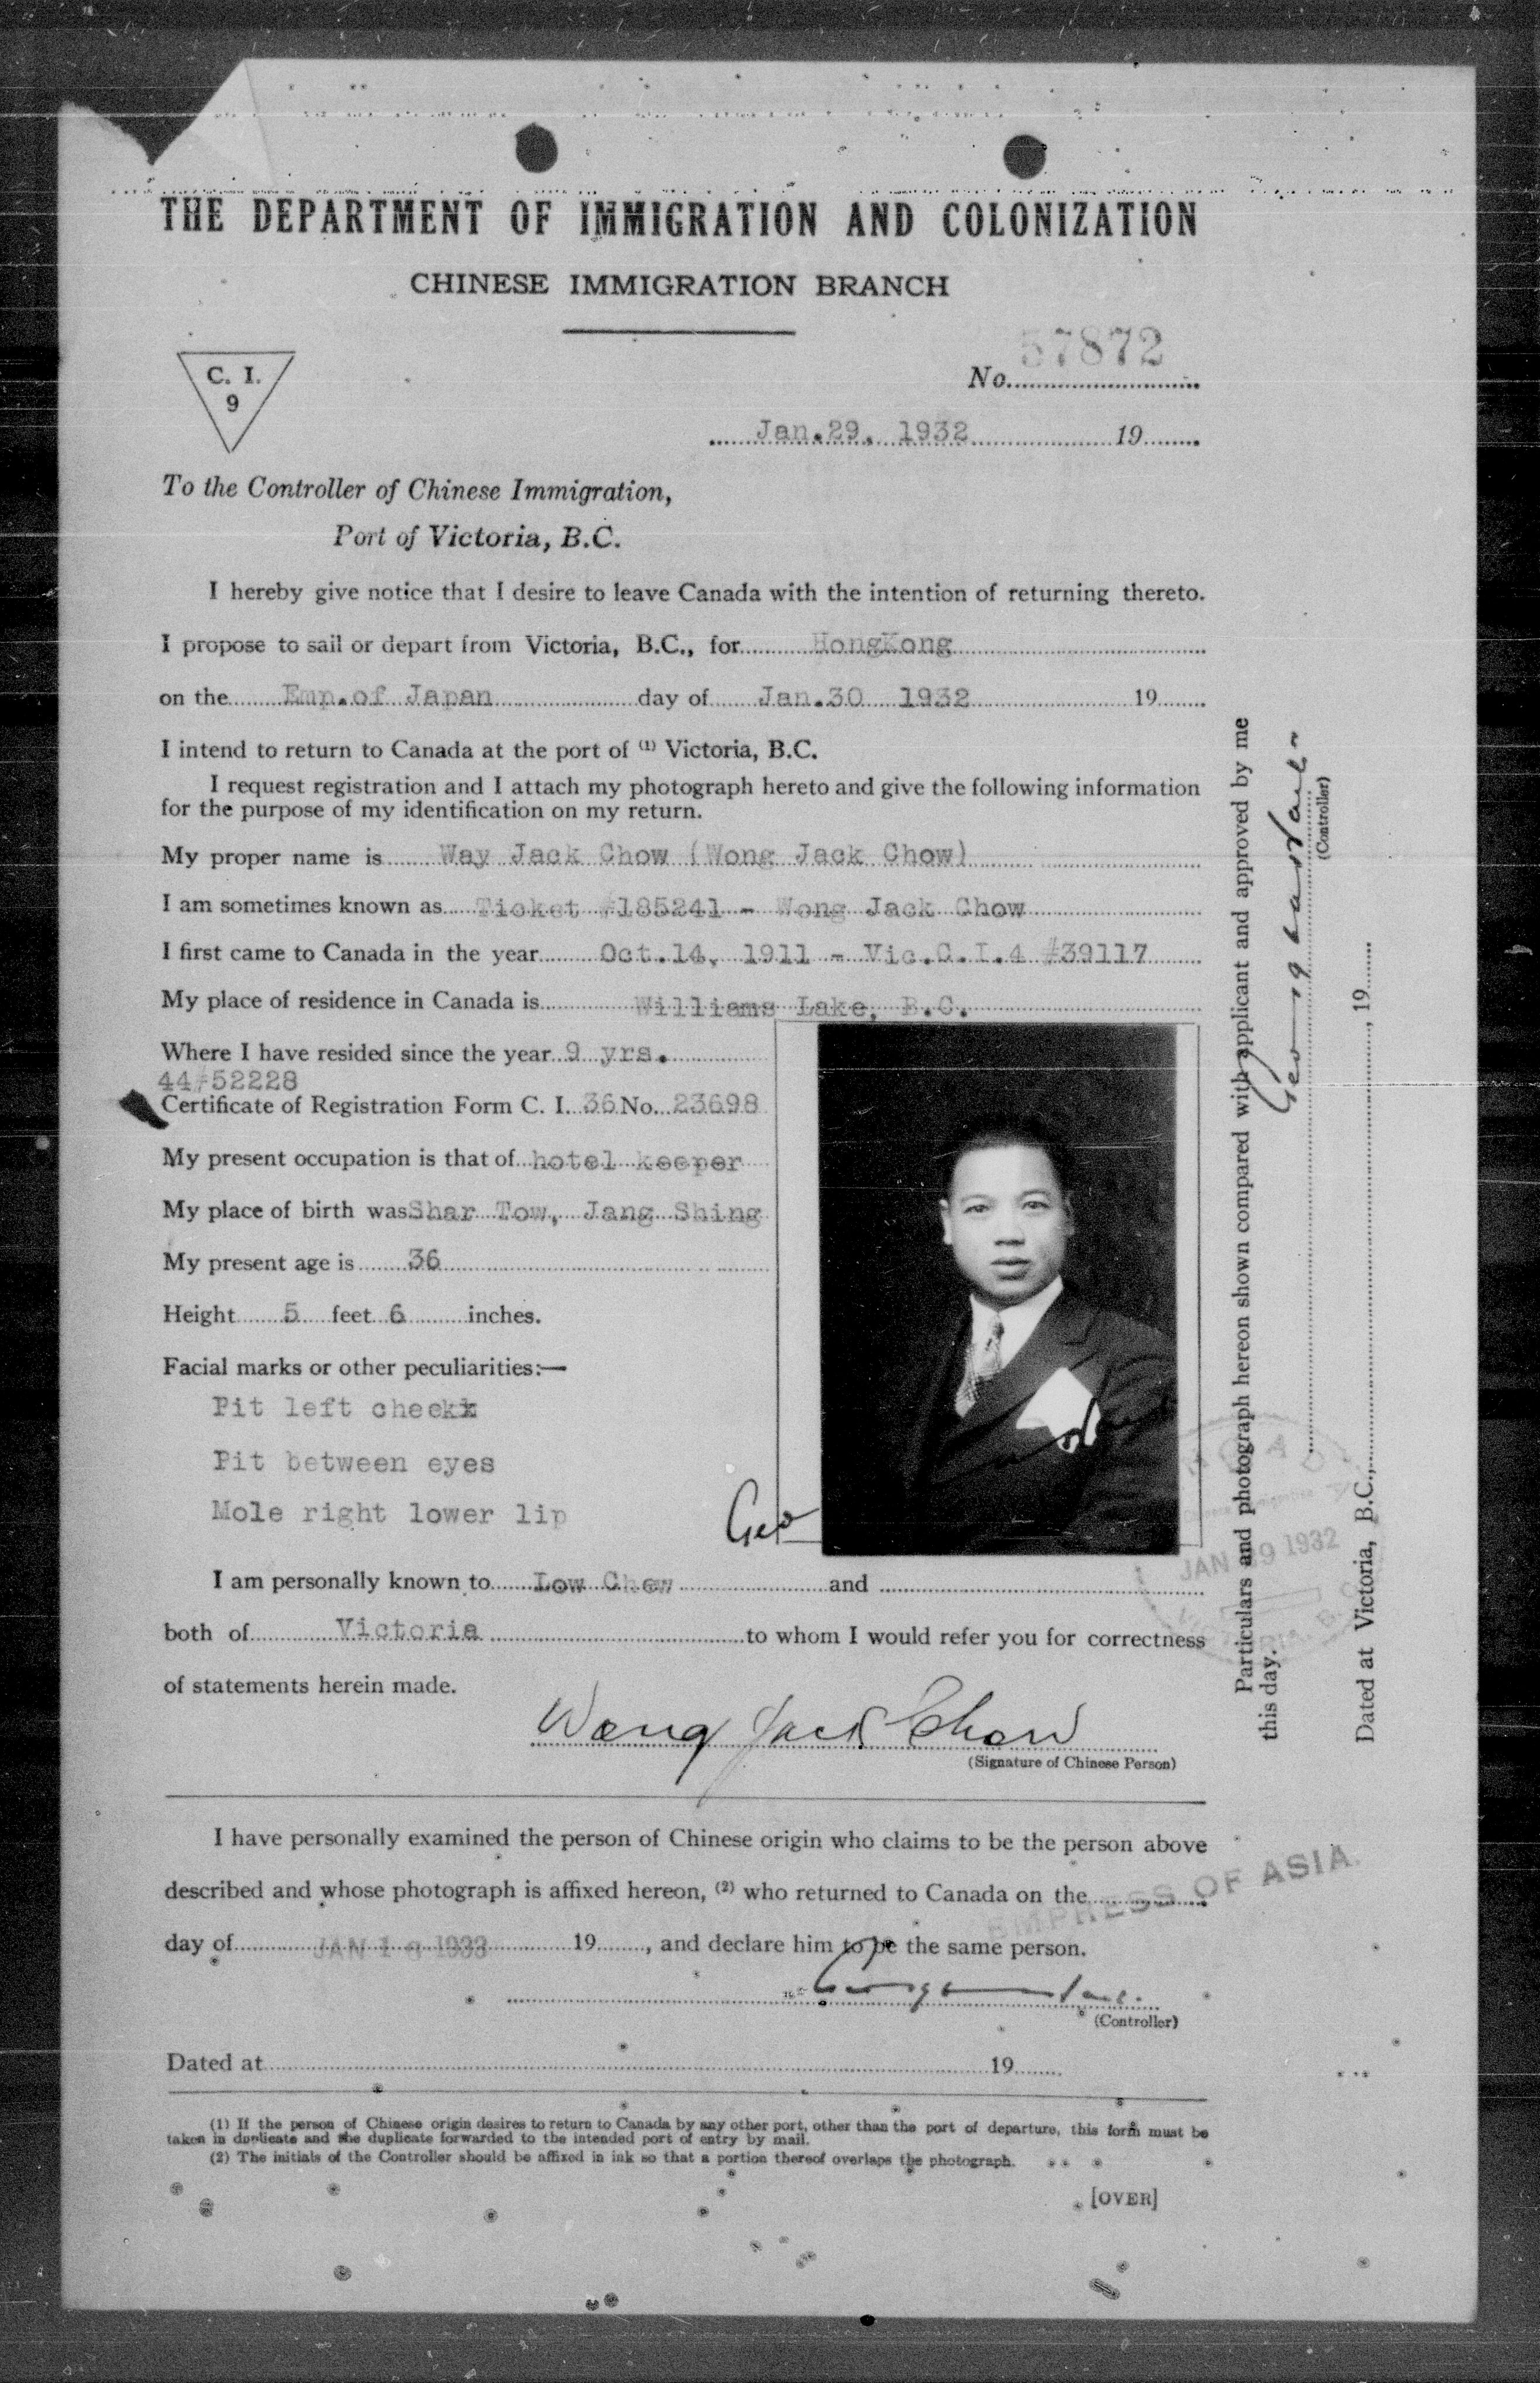 THE DEPARTMENT OF IMMIGRATION AND COLONIZATION
CHINESE IMMIGRATION BRANCH
C. I.
9
57872
No.
Jan.29, 1932 19
To the Controller of Chinese Immigration,
Port of Victoria, B.C.
I hereby give notice that I desire to leave Canada with the intention of returning thereto.
I propose to sail or depart from Victoria, B.C., for HongKong
on the Emp.of Japan day of Jan.30 1932 19
I intend to return to Canada at the port of (1) Victoria, B.C.
I request registration and I attach my photograph hereto and give the following information
for the purpose of my identification on my return.
My proper name is Way Jack Chow (Wong Jack Chow)
I am sometimes known as Ticket #185241 - Wong Jack Chow
I first came to Canada in the year Oct.14, 1911 - Vic.C.I.4 #39117
My place of residence in Canada is Williams Lake, B.C.
Where I have resided since the year 9 yrs.
44#52228
Certificate of Registration Form C. I. 36 No. 23698
My present occupation is that of hotel keeper
My place of birth was Shar Tow, Jang Shing
My present age is 36
Height 5 feet 6 inches.
Facial marks or other peculiarities:—
Pit left cheekk
Pit between eyes
Mole right lower lip
Geo
I am personally known to Low Chew and
both of Victoria to whom I would refer you for correctness
of statements herein made.
Wong Jack Chow
(Signature of Chinese Person)
I have personally examined the person of Chinese origin who claims to be the person above
described and whose photograph is affixed hereon, (2) who returned to Canada on the
EMPRESS OF ASIA.
day of JAN 1 1933 19, and declare him to be the same person.
(Controller)
Dated at 19
(1) If the person of Chinese origin desires to return to Canada by any other port, other than the port of departure, this form must be
taken in duplicate and the duplicate forwarded to the intended port of entry by mail.
(2) The initials of the Controller should be affixed in ink so that a portion thereof overlaps the photograph.
[OVER]
Particulars and photograph hereon shown compared with applicant and approved by me
this day.
(Controller)
Dated at Victoria, B.C., 19
JAN 29 1932